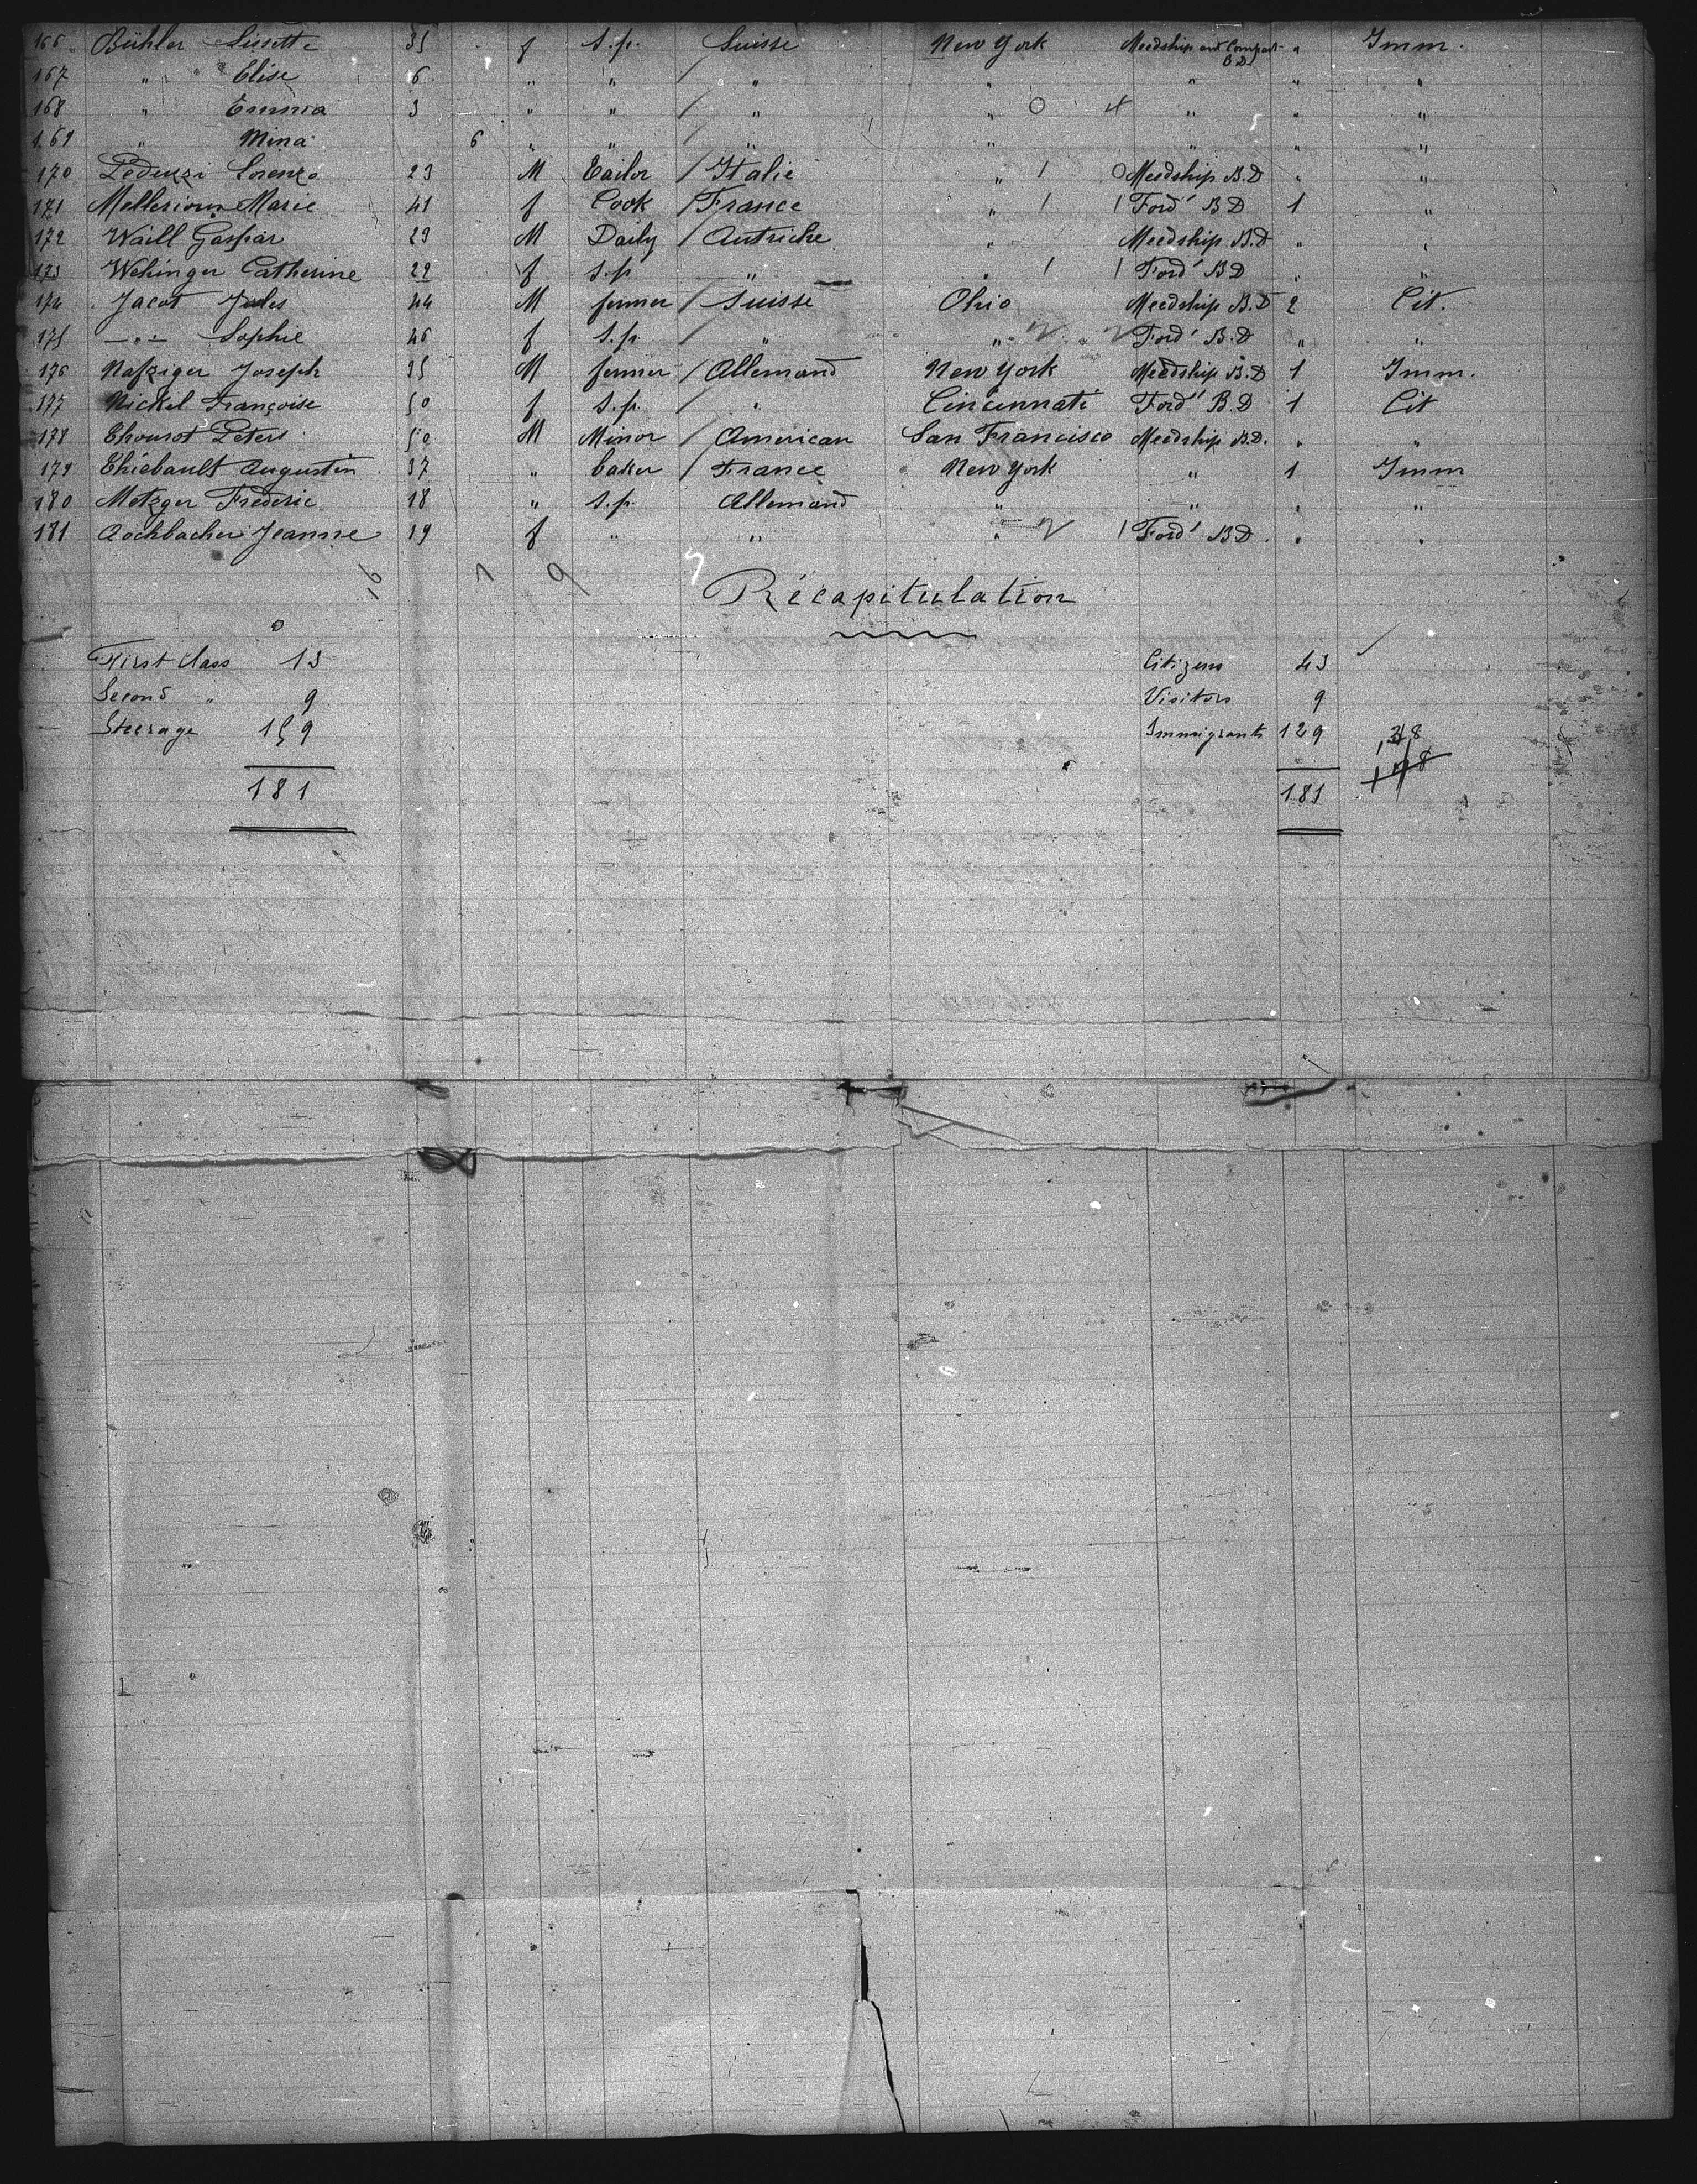 166 Bühler Lisette 35 f s.p. Suisse New York Meedship and Compart B.D. " Imm.
167 " Elise 6 " " / " " " " "
168 " Emma 3 " " / " " O 4 " " "
169 " Mina 6 " " / " " " " "
170 Peduzzi Lorenzo 23 M Tailor / Italie " 1 O Meedship B.D " "
171 Mellerioun Marie 41 f Cook / France " 1 1 Ford' B D 1 "
172 Waill Gaspar 29 M Daily / Autriche " Meedship B.D " "
173 Wehinger Catherine 22 f s.p " " 1 1 Ford' B D " "
174 Jacot Jules 44 M fermer / Suisse Ohio Meedship B.D 2 Cit.
175 -"- Sophie 46 f s.p. / " " 2 2 Ford' B.D " "
176 Nafziger Joseph 35 M fermer / Allemand New York Meedship B.D 1 Imm.
177 Nickel Françoise 50 f s.p. / " Cincinnati Ford' B.D 1 Cit
178 Thourot Peters 50 M Minor / American San Francisco Meedship B.D. " "
179 Thiebault Augustin 37 " baker / France New York " 1 Imm
180 Metzger Frederic 18 " s.p. Allemand " " " "
181 Aochbacher Jeanne 19 f " " " 2 1 Ford' B D. " "
16 7 9
Récapitulation
First Class 13 Citizens 43
Second " 9 Visitors 9
Steerage 159 Immigrants 129
181 181